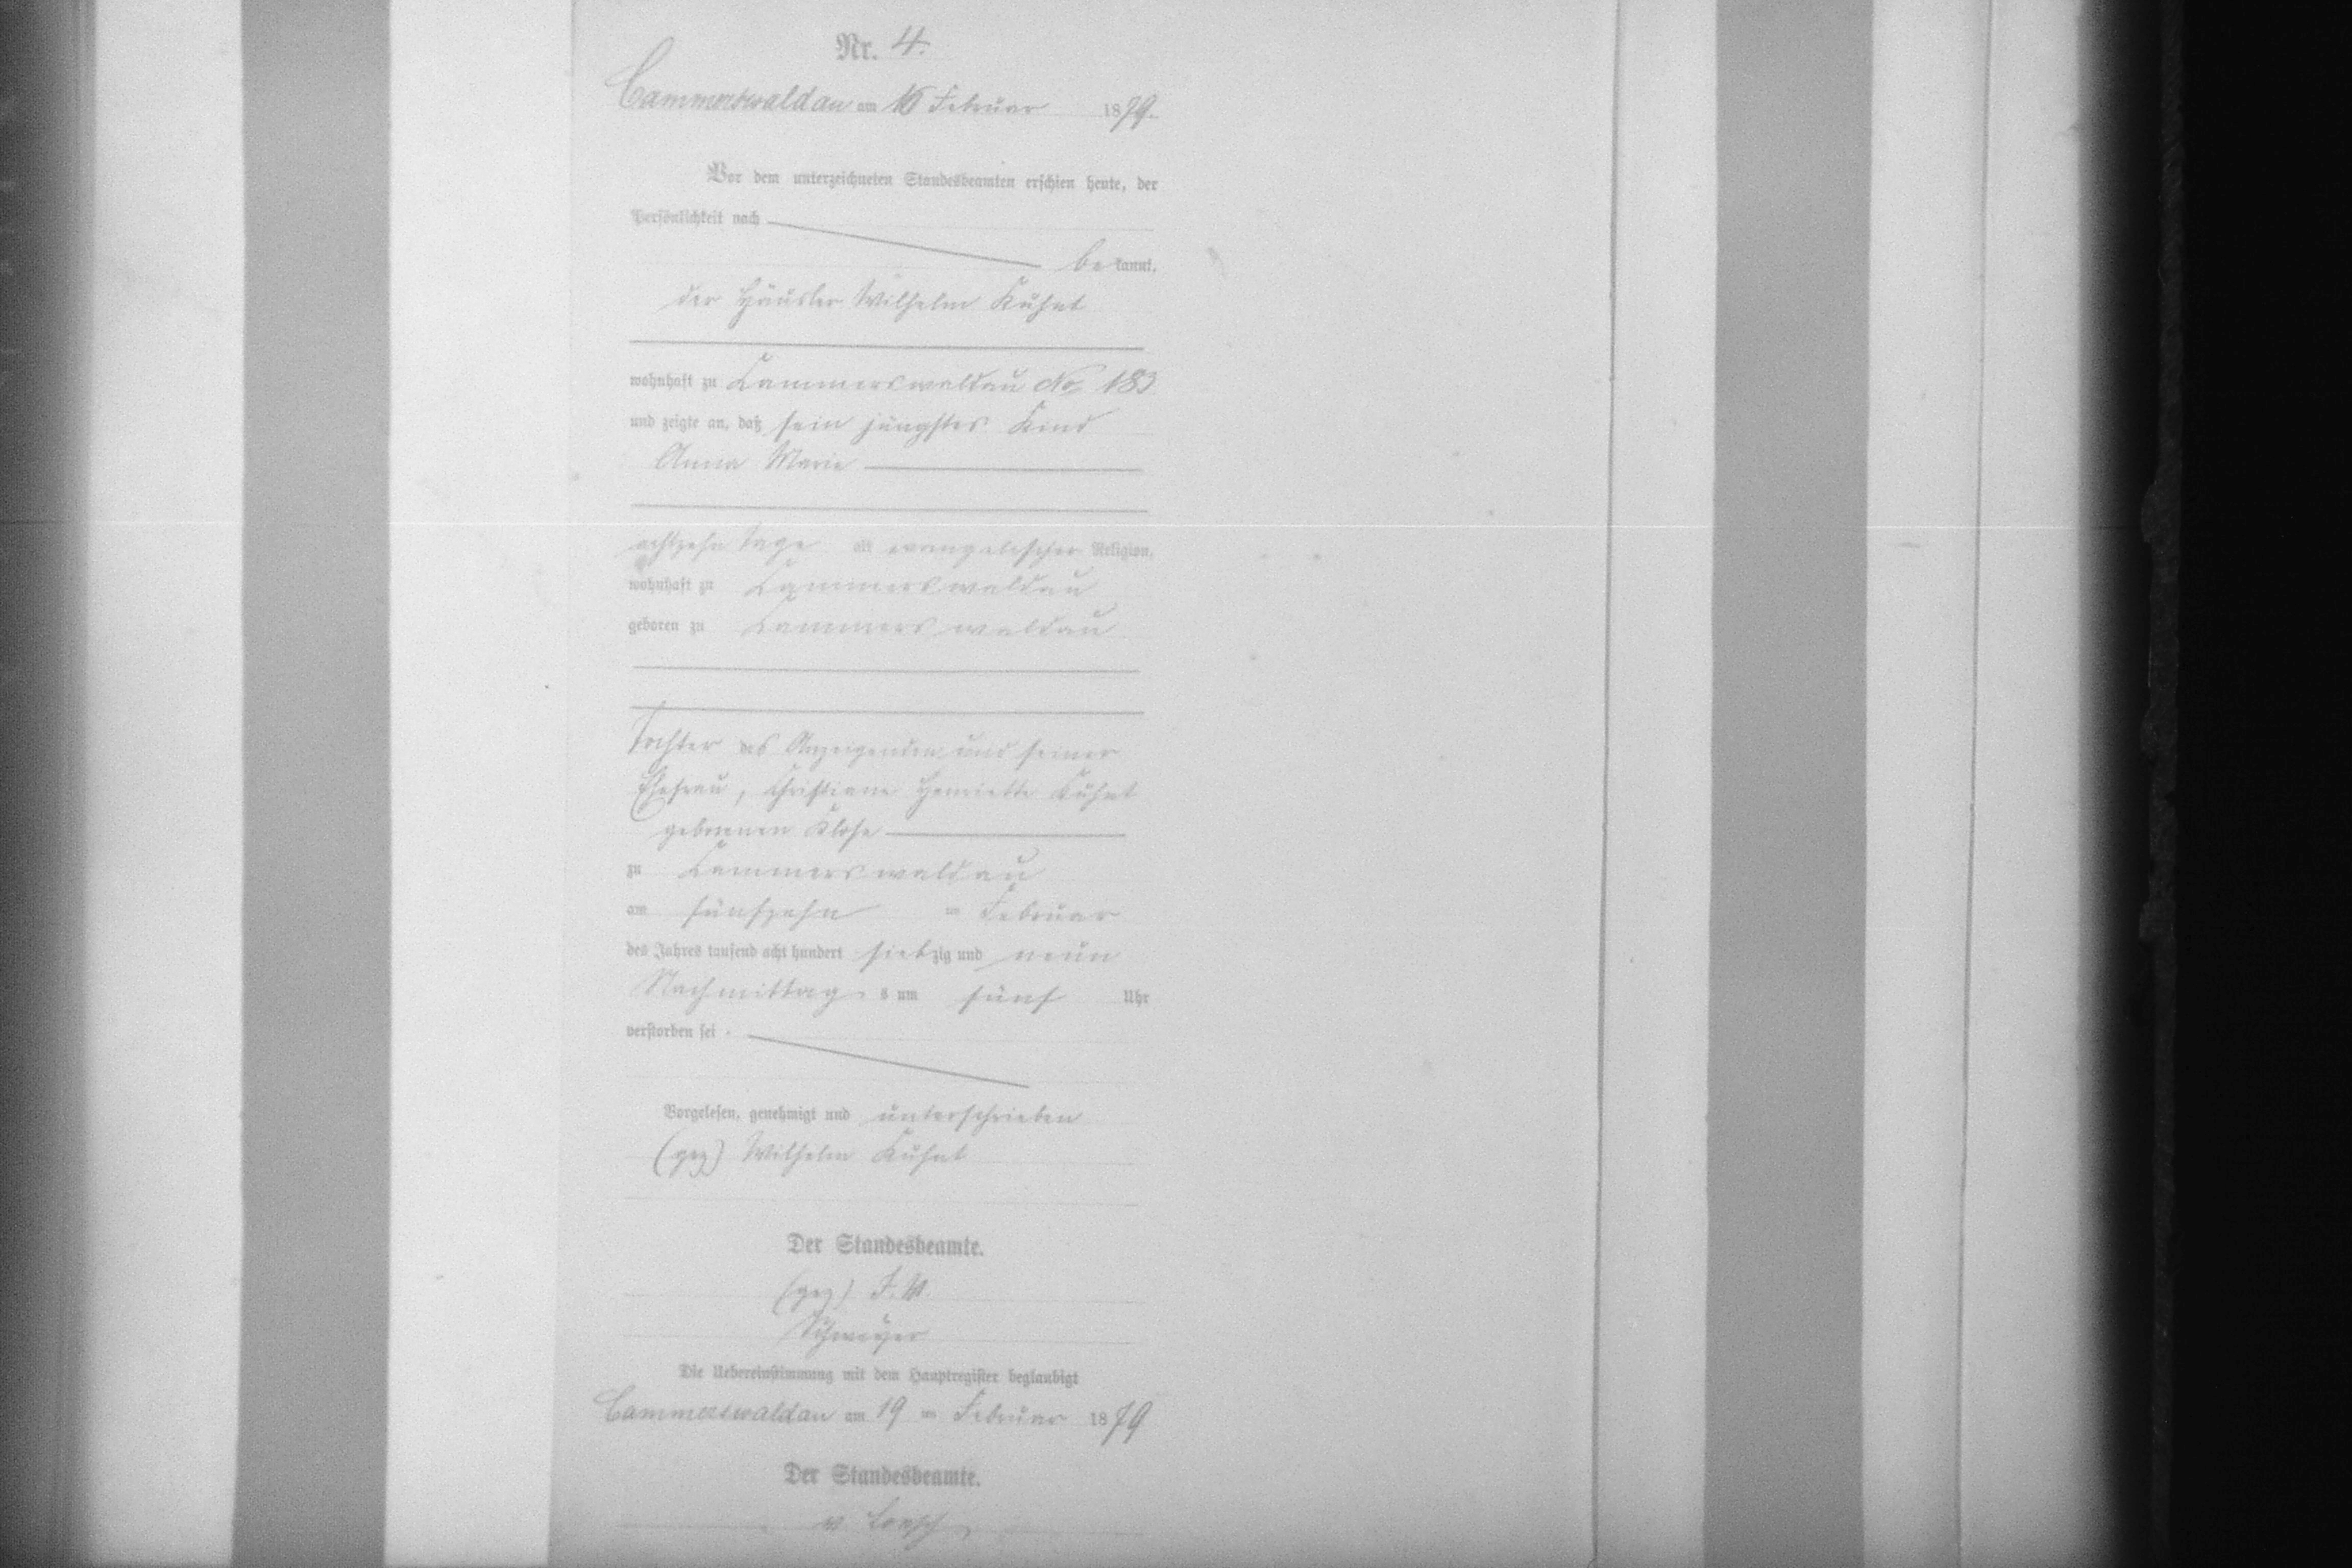 Nr. 4.
Cammerswaldau am 16 Februar 1879.
Vor dem unterzeichneten Standesbeamten erschien heute, der
Persönlichkeit nach
bekannt,
der Häusler Wilhelm Kuhnt
wohnhaft zu Cammerswaldau No 183
und zeigte an, daß sein jüngstes Kind
Anna Marie
achtzehn Tage alt evangelischer Religion,
wohnhaft zu Cammerswaldau
geboren zu Cammerswaldau
Tochter des Anzeigenden und seiner
Ehefrau, Christiane Henriette Kuhnt
geborenen Klose
zu Cammerswaldau
am fünfzehn ten Februar
des Jahres tausend acht hundert siebzig und neun
Nachmittags um fünf Uhr
verstorben sei.
Vorgelesen, genehmigt und unterschrieben
(gez) Wilhelm Kuhnt
Der Standesbeamte.
(gez) F. W.
Die Uebereinstimmung mit dem Hauptregister beglaubigt
Cammerswaldau am 19 ten Februar 1879
Der Standesbeamte.